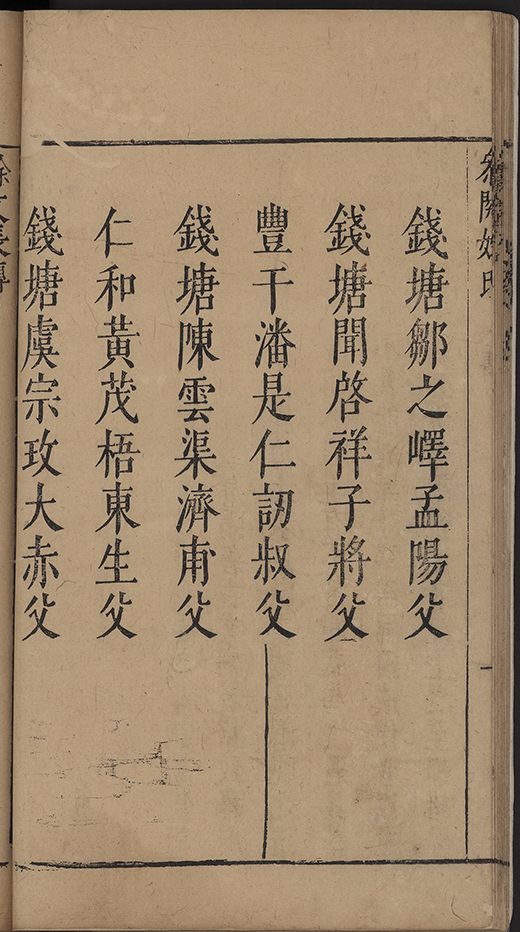 校閱姓氏
錢塘鄒之嶧孟陽父
錢塘聞啓祥子將父
豐干潘是仁訒叔父
錢塘陳雲渠濟甫父
仁和黃茂梧東生父
錢塘虞宗玫大赤父